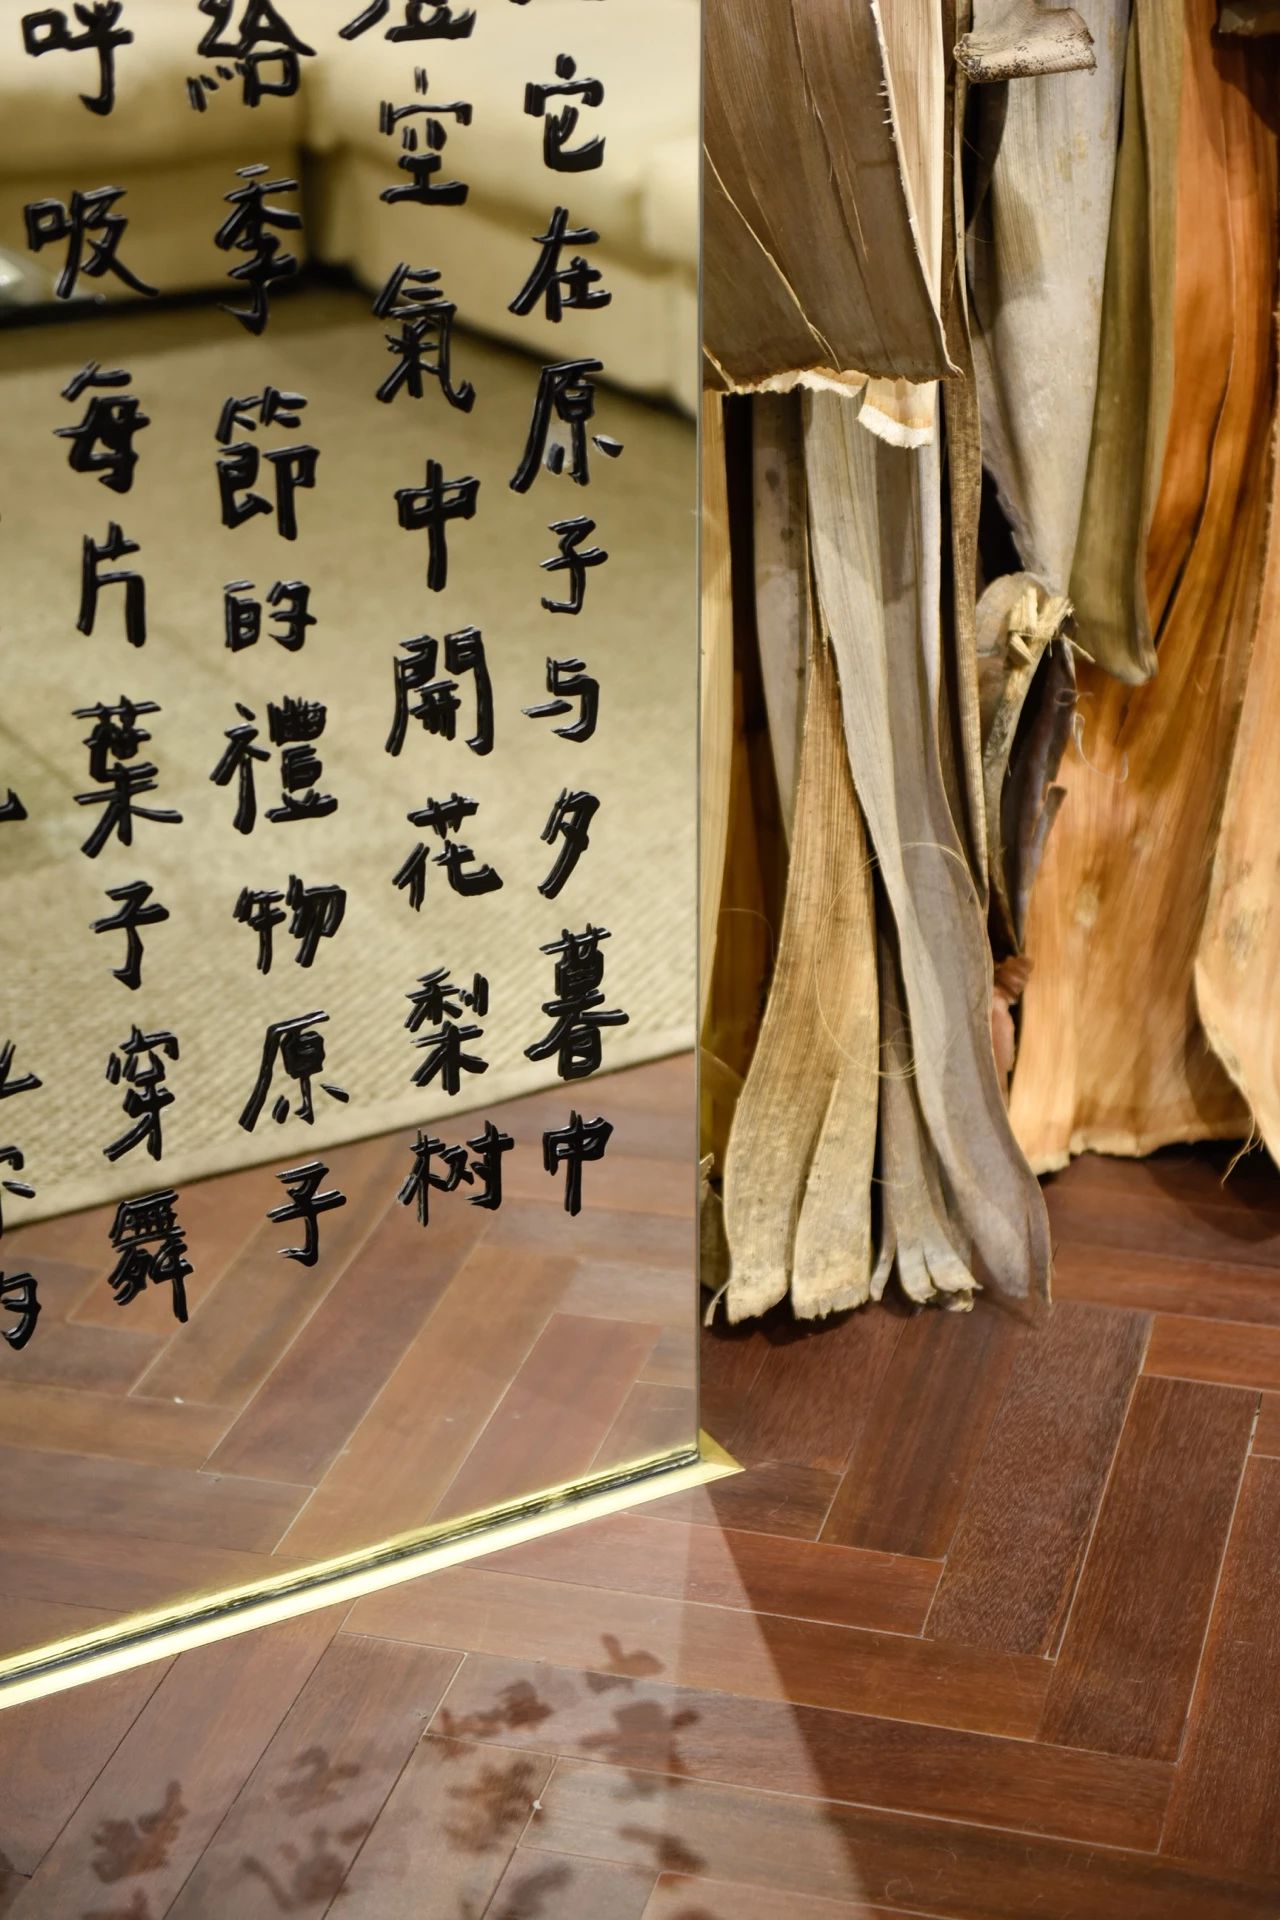 它在原子与夕暮中
空氣中開花梨树
給季節的禮物原子
呼吸每片葉子穿舞